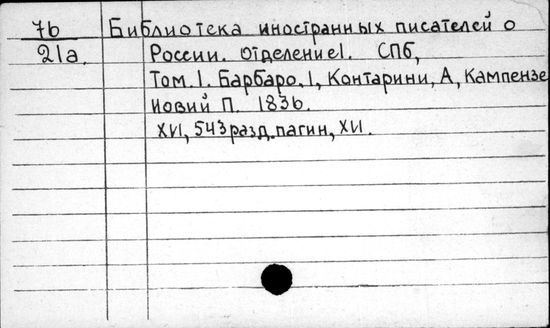 7b Библиотека иностранных писателей о
21а. России. Отделение1. СПб,
Том.1. Барбаро.1, Контарини, А, Кампензе
Иовий П. 1836.
XVI, 543 разд.пагин, XVI.